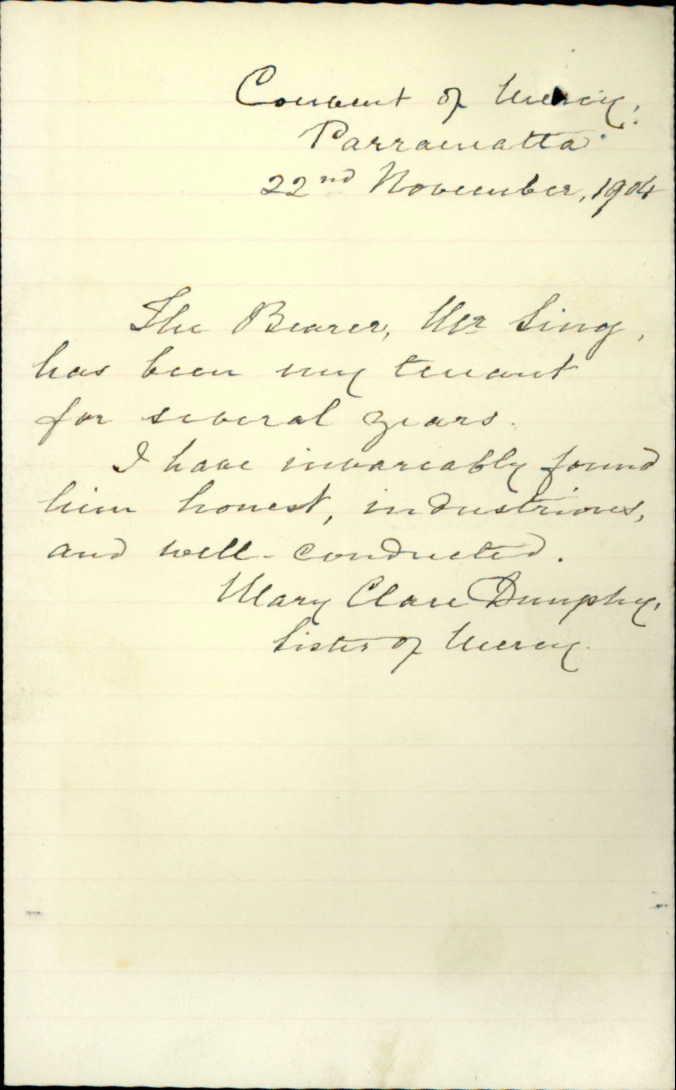 Convent of Mercy,
Parramatta.
22nd November, 1904
The Bearer, Mr Sing,
has been my tenant
for several years.
I have invariably found
him honest, industrious,
and well-conducted.
Mary Clare Dunphy,
Sister of Mercy.